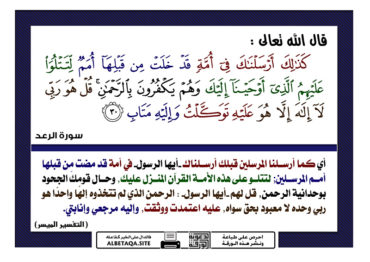 قال الله تعالى :
كَذَٰلِكَ أَرْسَلْنَاكَ فِي أُمَّةٍ قَدْ خَلَتْ مِن قَبْلِهَا أُمَمٌ لِّتَتْلُوَا
عَلَيْهِمُ الَّذِي أَوْحَيْنَا إِلَيْكَ وَهُمْ يَكْفُرُونَ بِالرَّحْمَٰنِ قُلْ هُوَ رَبِّي
لَا إِلَٰهَ إِلَّا هُوَ عَلَيْهِ تَوَكَّلْتُ وَإِلَيْهِ مَتَابِ ٣٠
سورة الرعد
أي كما أرسلنا المرسلين قبلك أرسلناك -أيها الرسول- في أمة قد مضت من قبلها
أمم المرسلين؛ لتتلو على هذه الأمة القرآن المنزل عليك، وحال قومك الجحود
بوحدانية الرحمن، قل لهم -أيها الرسول- : الرحمن الذي لم تتخذوه إلهًا واحدًا هو
ربي وحده لا معبود بحق سواه، عليه اعتمدت ووثقت، وإليه مرجعي وإنابتي.
( التفسير الميسر)
احرص على طباعة
ونشر هذه الورقة
ALBETAQA.SITE